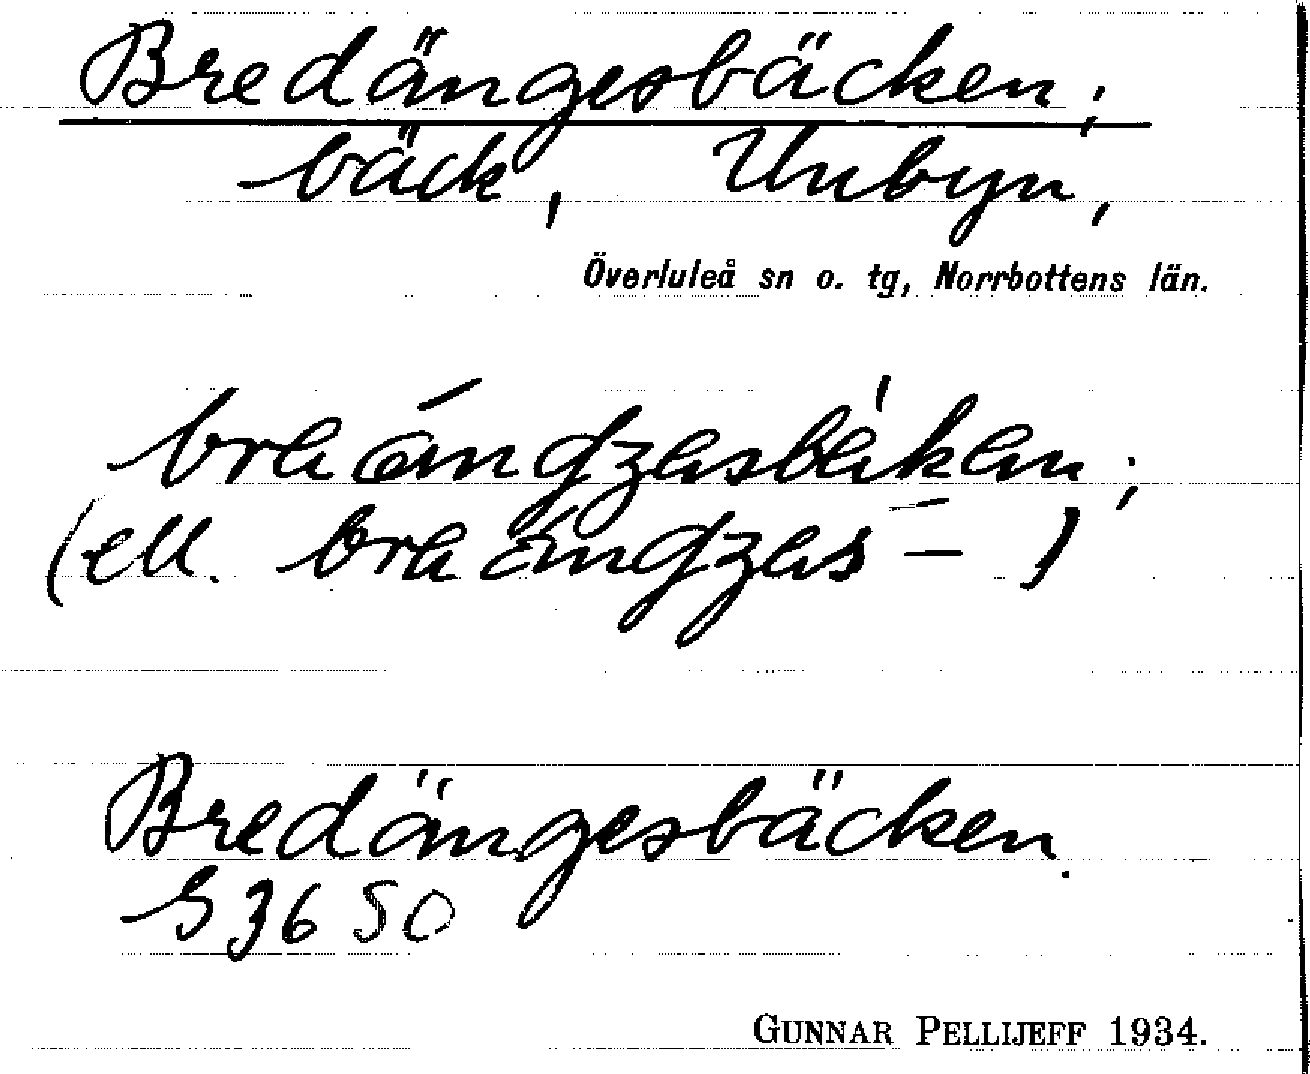 Bredängesbäcken;
bäck, Unbyn,
Överluleå sn o. tg, Norrbottens län.
(ell.
Bredängesbäcken.
S 36 SO
GUNNAR PELLIJEFF 1934.